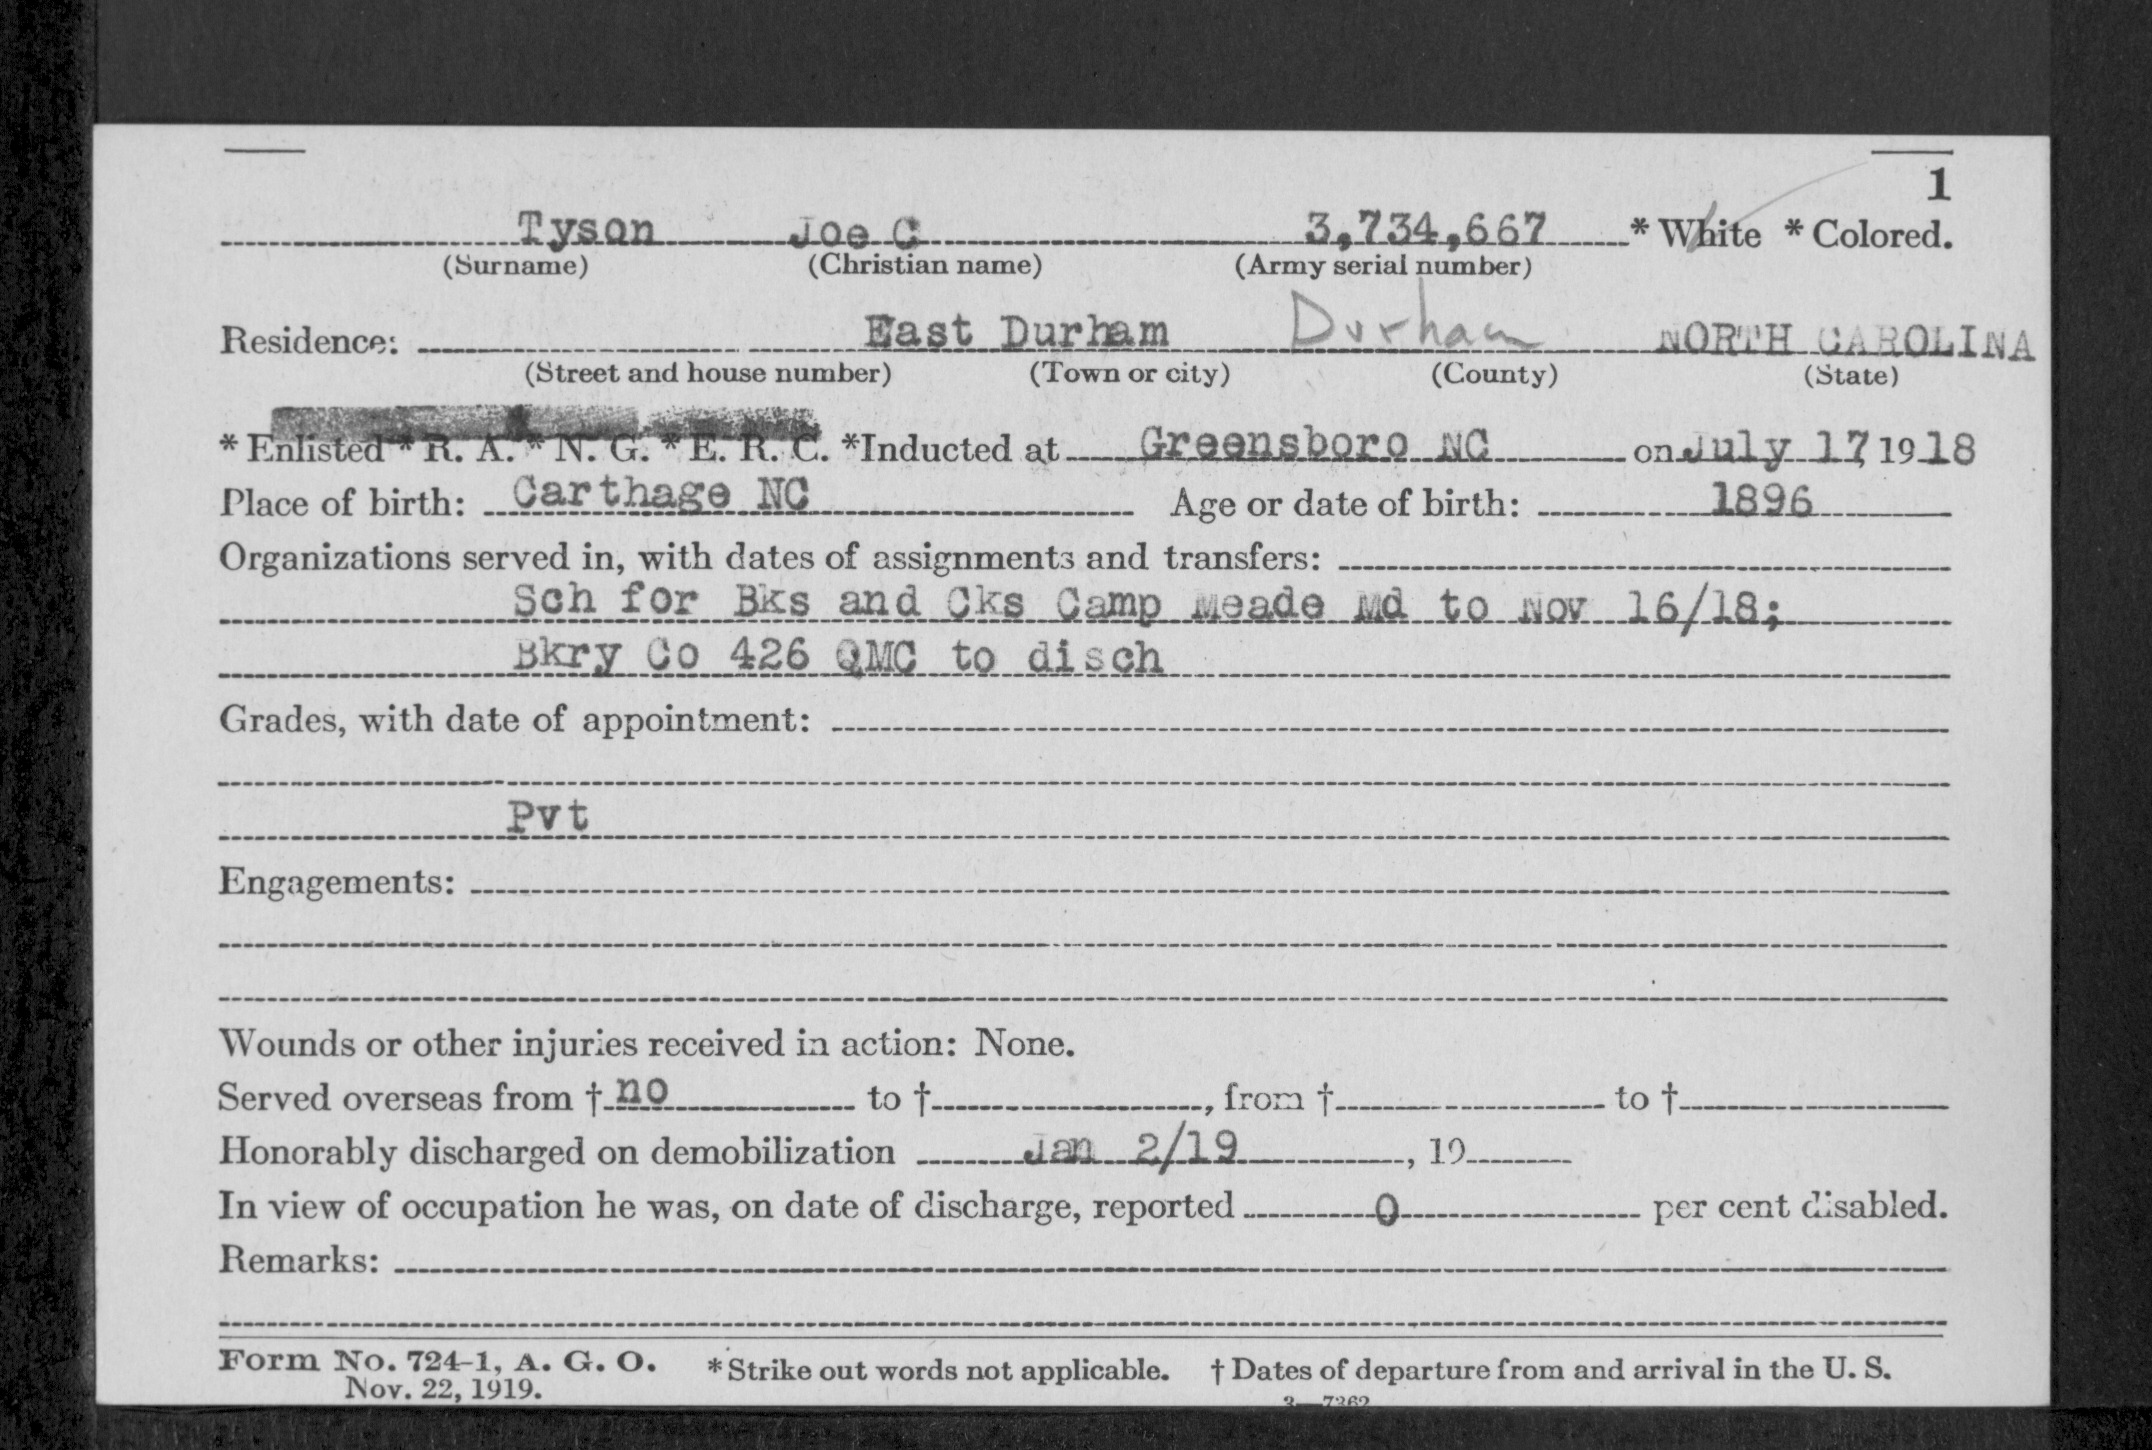 1
Tyson Joe C 3,734,667 * White * Colored.
(Surname) (Christian name) (Army serial number)
Residence: East Durham Durham NORTH CAROLINA
(Street and house number) (Town or city) (County) (State)
* Enlisted * R. A. * N. G. * E. R. C. *Inducted at Greensboro NC on July 17, 1918
Place of birth: Carthage NC Age or date of birth: 1896
Organizations served in, with dates of assignments and transfers:
Sch for Bks and Cks Camp Meade Md to Nov 16/18;
Bkry Co 426 QMC to disch
Grades, with date of appointment:
Pvt
Engagements:
Wounds or other injuries received in action: None.
Served overseas from † no to †, from † to †
Honorably discharged on demobilization Jan 2/19, 19
In view of occupation he was, on date of discharge, reported 0 per cent disabled.
Remarks:
Form No. 724-1, A. G. O. * Strike out words not applicable. † Dates of departure from and arrival in the U. S.
Nov. 22, 1919.
3—7362